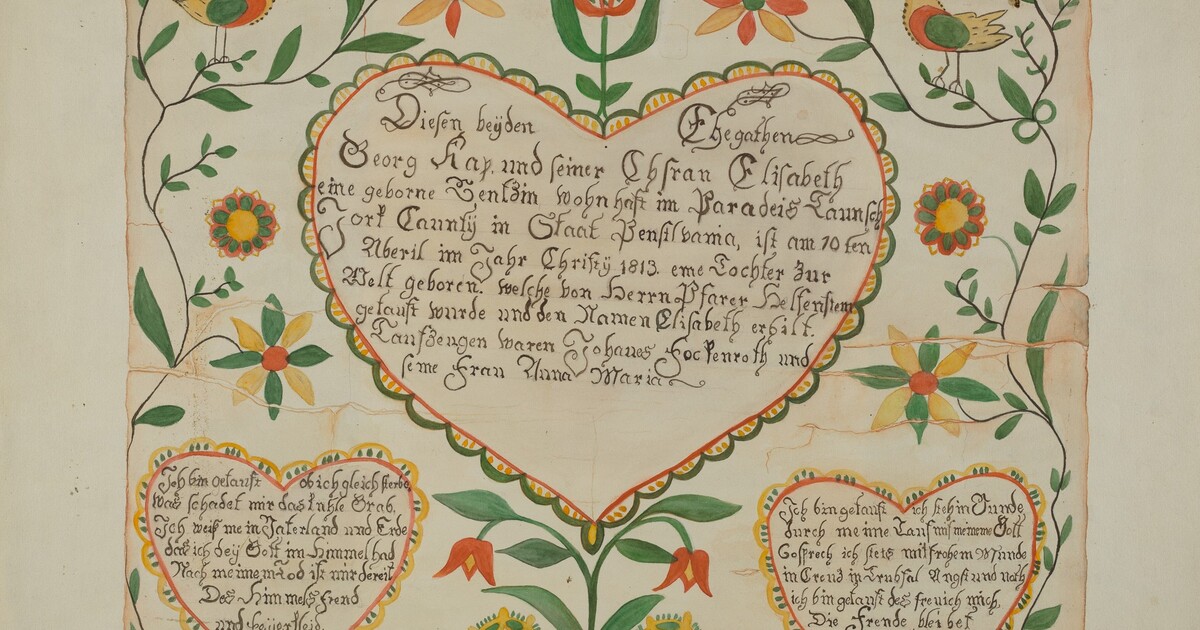 Diesen beyden Ehegathen
Georg Kap. und seiner Ehfran Elisabeth
eine geborne wohnhaft im Paradeis Taunsch
York Caunty in Staat Pensilvania, ist am 10 ten
Aberil im Jahr Christy 1813. eine Tochter zur
Welt geboren. welche von Herrn Pfarer Helfenstein
getauft wurde und den Namen Elisabeth erhilt.
Taufzeugen waren Johanes Fockenroth und
seine Frau Anna Maria
Ich bin getauft ob ich gleich sterbe
Was schadet mir das kuhle Grab.
Ich weis mein Vaterland und Erbe
das ich bey Gott im Himmel hab
Nach meinem Tod ist mir bereit
Des Himmels Freud
und Feyerkleid.
Ich bin getauft ich steh im Bunde
durch meine Tauf mit meinem Gott
So sprech ich stets mit frohem Munde
in Creuz in Trubsal Angst und noth
ich bin getauft des freu ich mich,
Die Freude bleibet